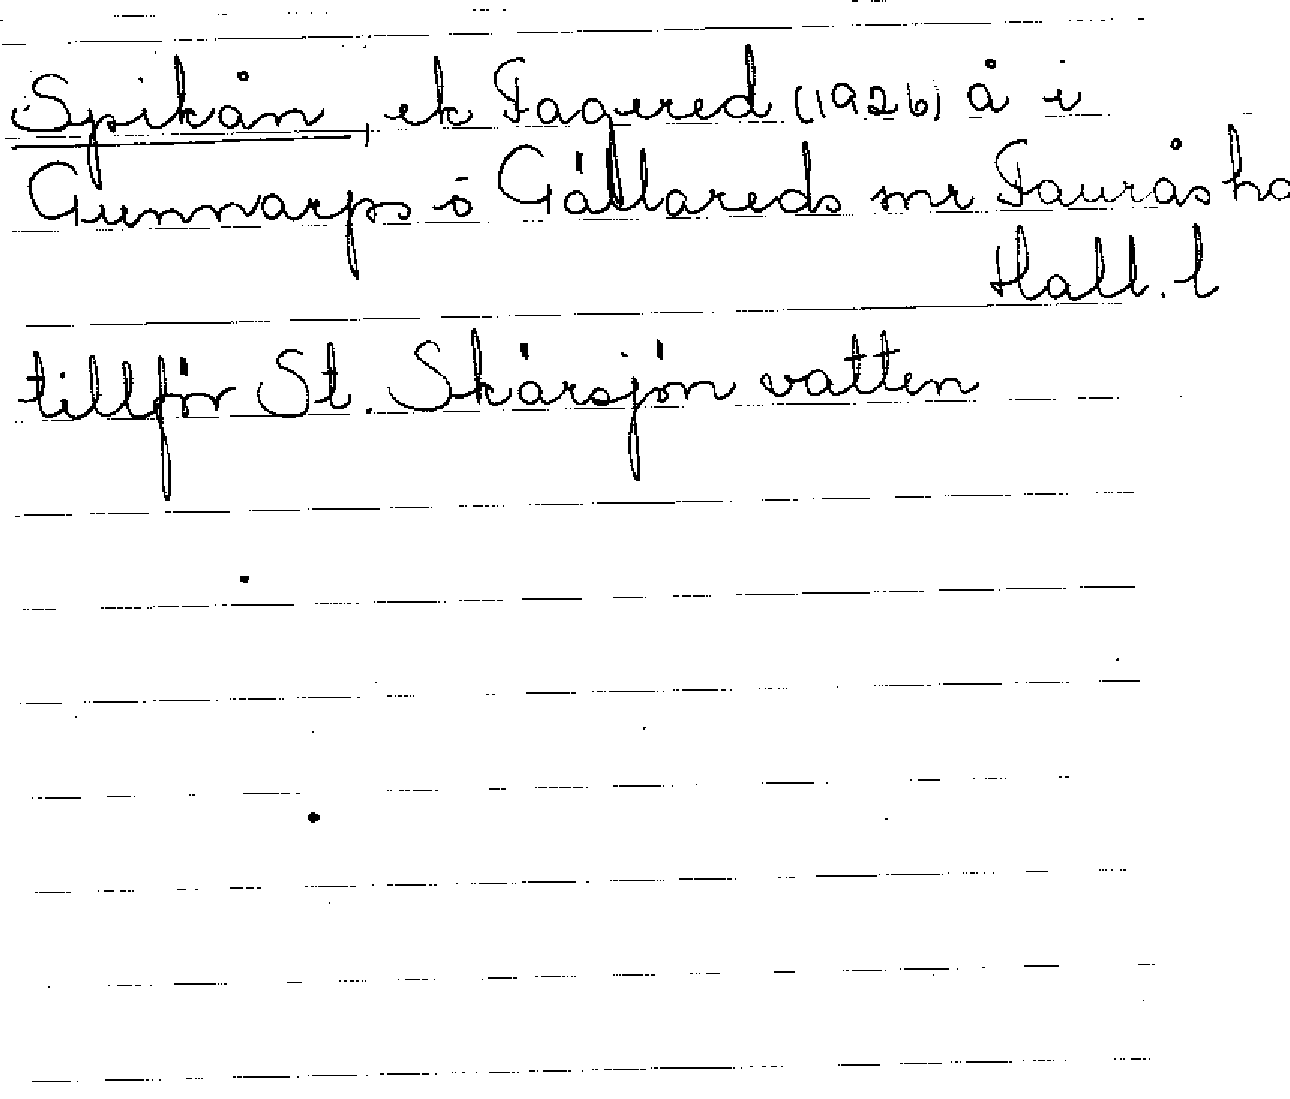 Spikån, ek Fagered (1926) å i
Gunnarps o Gällareds snr Faurås hd
Hall. l
tillför St. Skärsjön vatten